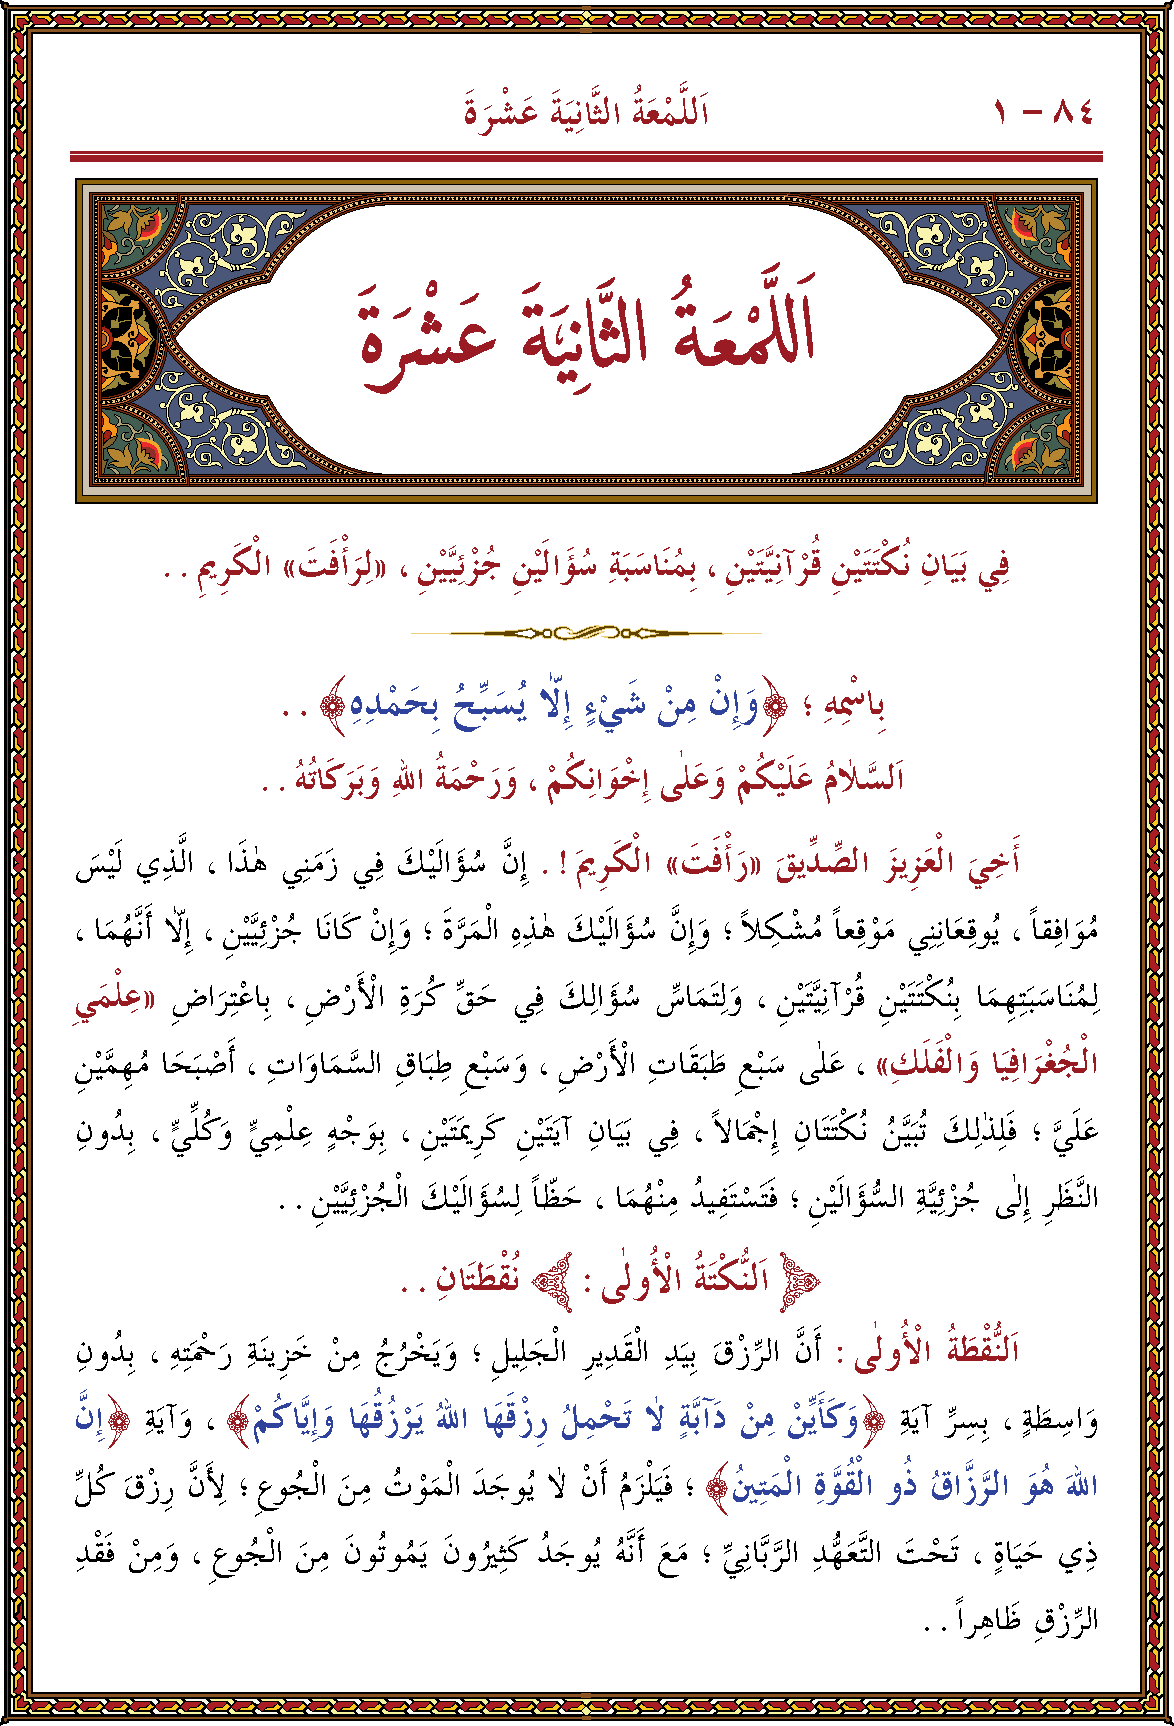 ٨٤ – ١
اَللَّمْعَةُ الثَّانِيَةَ عَشْرَةَ
اَللَّمْعَةُ الثَّانِيَةَ عَشْرَةَ
فِي بَيَانِ نُكْتَتَيْنِ قُرْآنِيَّتَيْنِ ، بِمُنَاسَبَةِ سُؤَالَيْنِ جُزْئِيَّيْنِ ، «لِرَأْفَتَ» الْكَرِيمِ . .
بِاسْمِهِ ؛ ﴿وَإِنْ مِنْ شَيْءٍ إِلَّا يُسَبِّحُ بِحَمْدِهِ﴾ . .
اَلسَّلَامُ عَلَيْكُمْ وَعَلٰى إِخْوَانِكُمْ ، وَرَحْمَةُ اللهِ وَبَرَكَاتُهُ . .
أَخِيَ الْعَزِيزَ الصِّدِّيقَ «رَأْفَتَ» الْكَرِيمَ ! . إِنَّ سُؤَالَيْكَ فِي زَمَنِي هٰذَا ، الَّذِي لَيْسَ
مُوَافِقاً ، يُوقِعَانِنِي مَوْقِعاً مُشْكِلاً ؛ وَإِنَّ سُؤَالَيْكَ هٰذِهِ الْمَرَّةَ ؛ وَإِنْ كَانَا جُزْئِيَّيْنِ ، إِلَّا أَنَّهُمَا ،
لِمُنَاسَبَتِهِمَا بِنُكْتَتَيْنِ قُرْآنِيَّتَيْنِ ، وَلِتَمَاسِّ سُؤَالِكَ فِي حَقِّ كُرَةِ الْأَرْضِ ، بِاعْتِرَاضِ «عِلْمَيِ
الْجُغْرَافِيَا وَالْفَلَكِ» ، عَلٰى سَبْعِ طَبَقَاتِ الْأَرْضِ ، وَسَبْعِ طِبَاقِ السَّمَاوَاتِ ، أَصْبَحَا مُهِمَّيْنِ
عَلَيَّ ؛ فَلِذٰلِكَ تُبَيَّنُ نُكْتَتَانِ إِجْمَالاً ، فِي بَيَانِ آيَتَيْنِ كَرِيمَتَيْنِ ، بِوَجْهٍ عِلْمِيٍّ وَكُلِّيٍّ ، بِدُونِ
النَّظَرِ إِلٰى جُزْئِيَّةِ السُّؤَالَيْنِ ؛ فَتَسْتَفِيدُ مِنْهُمَا ، حَظّاً لِسُؤَالَيْكَ الْجُزْئِيَّيْنِ . .
اَلنُّكْتَةُ الْأُولٰى : نُقْطَتَانِ . .
اَلنُّقْطَةُ الْأُولٰى : أَنَّ الرِّزْقَ بِيَدِ الْقَدِيرِ الْجَلِيلِ ؛ وَيَخْرُجُ مِنْ خَزِينَةِ رَحْمَتِهِ ، بِدُونِ
وَاسِطَةٍ ، بِسِرِّ آيَةِ ﴿وَكَأَيِّنْ مِنْ دَآبَّةٍ لَا تَحْمِلُ رِزْقَهَا اللهُ يَرْزُقُهَا وَإِيَّاكُمْ﴾ ، وَآيَةِ ﴿إِنَّ
اللهَ هُوَ الرَّزَّاقُ ذُو الْقُوَّةِ الْمَتِينُ﴾ ؛ فَيَلْزَمُ أَنْ لَا يُوجَدَ الْمَوْتُ مِنَ الْجُوعِ ؛ لِأَنَّ رِزْقَ كُلِّ
ذِي حَيَاةٍ ، تَحْتَ التَّعَهُّدِ الرَّبَّانِيِّ ؛ مَعَ أَنَّهُ يُوجَدُ كَثِيرُونَ يَمُوتُونَ مِنَ الْجُوعِ ، وَمِنْ فَقْدِ
الرِّزْقِ ظَاهِراً . .